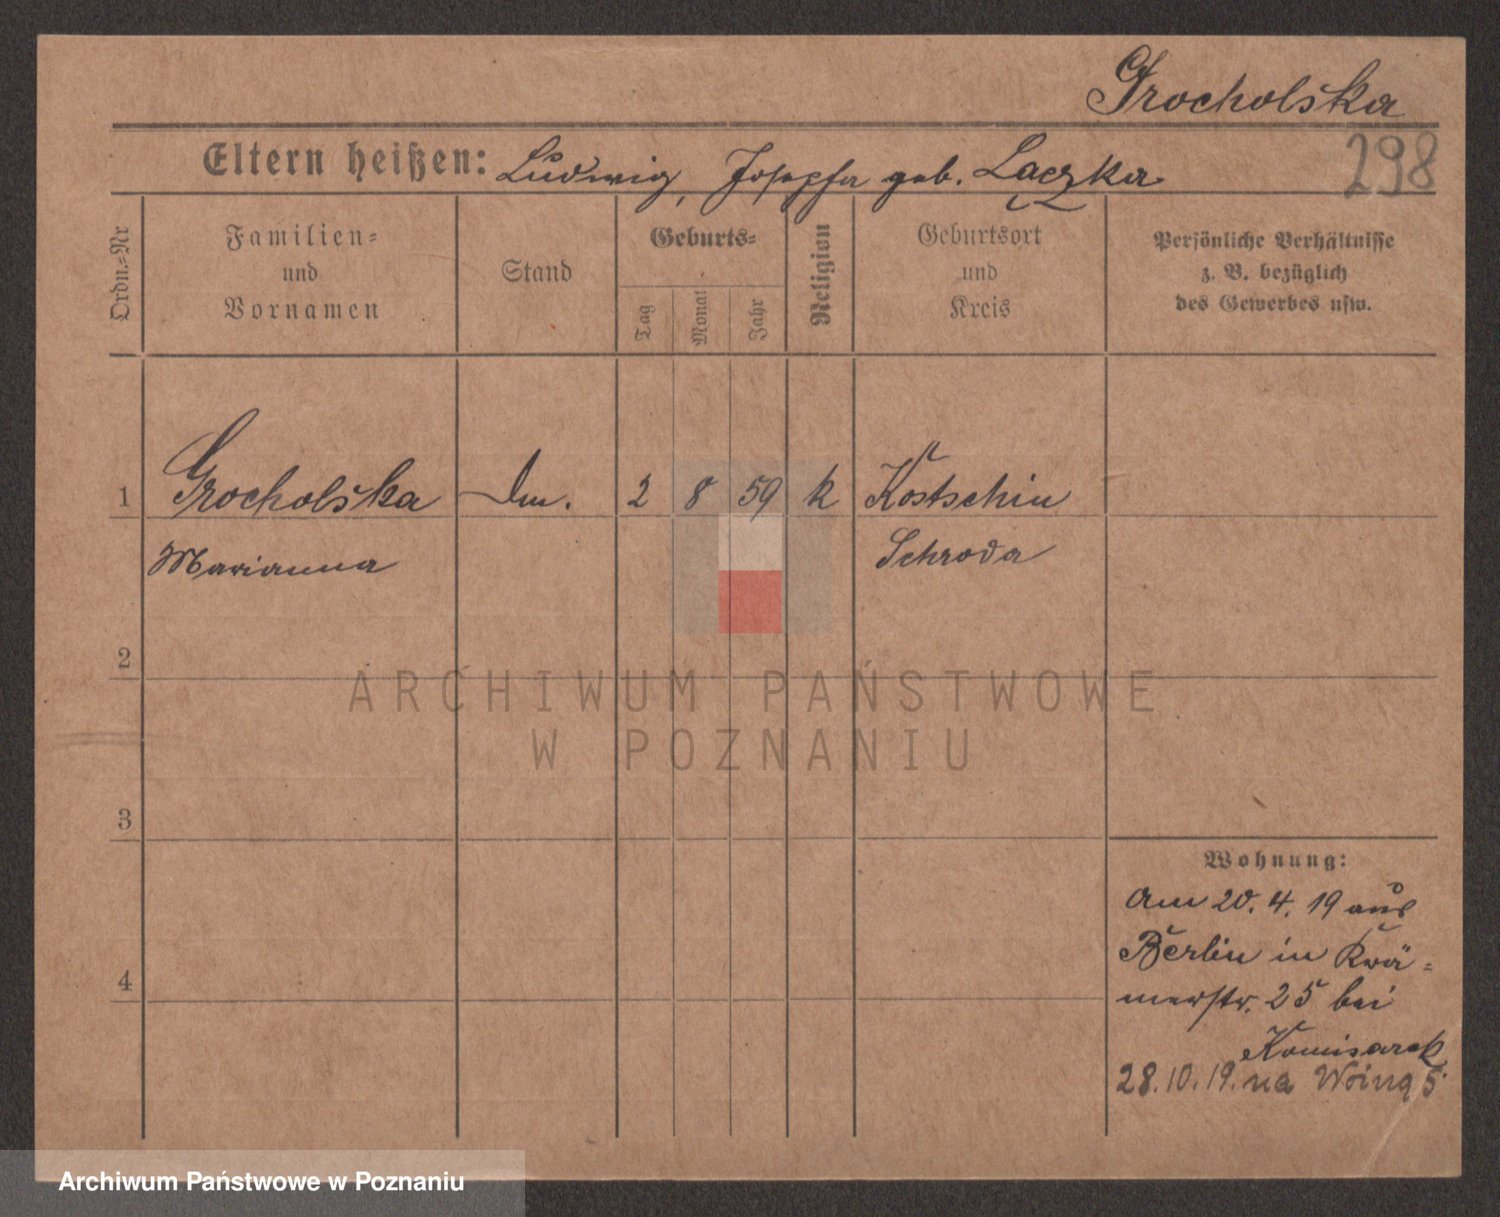 Grocholska
298
Eltern heißen: Ludwig, Josepha geb. Łączka
Ordn.-Nr
Familien-
und
Vornamen
Stand
Geburts-
Tag
Monat
Jahr
Religion
Geburtsort
und
Kreis
Persönliche Verhältnisse
z. B. bezüglich
des Gewerbes usw.
1 Grocholska 2 8 59 k Kostschin
Marianna Schroda
2
3
4
ARCHIWUM PAŃSTWOWE
W POZNANIU
Wohnung:
Am 20. 4. 19 aus
Berlin in Krä-
merstr. 25 bei
Komisarek
28.10.19. na 5
Archiwum Państwowe w Poznaniu